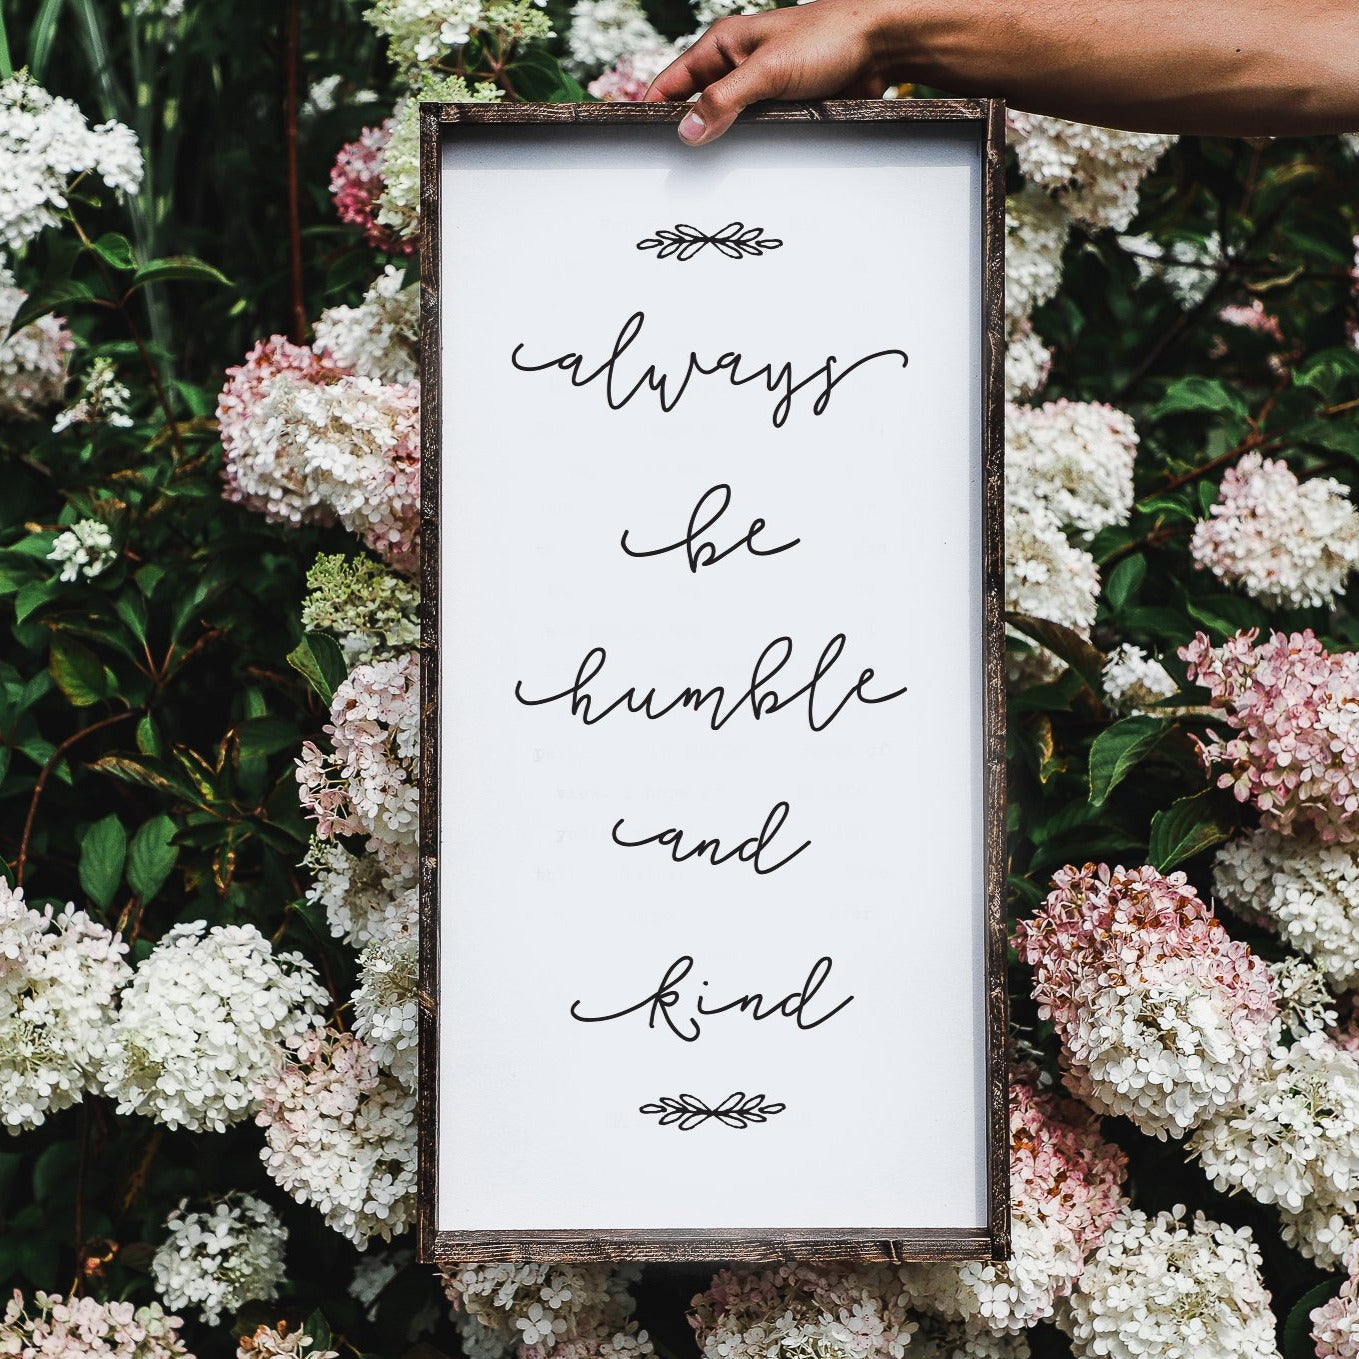 always
be
humble
and
kind